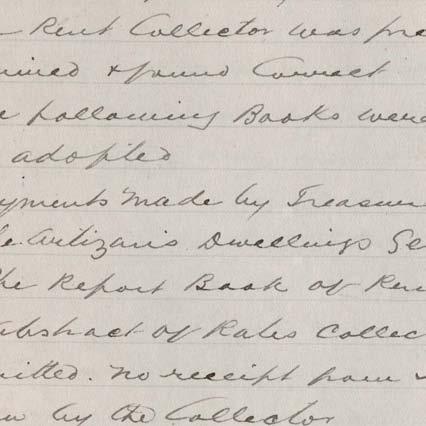 Rent Collector was pre
mined & found Correct
e following Books were
adopted
yments made by Treasur
he Artizans Dwellings Ge
the Report Book of Ren
Abstract of Rates Collec
mitted. no receipt from
by the Collector